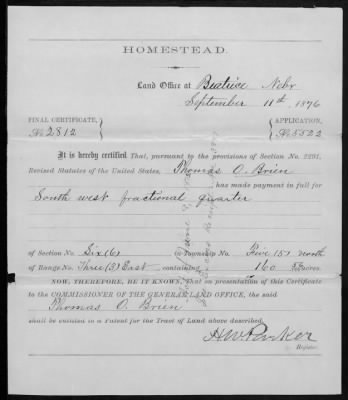 HOMESTEAD.
Land Office at Beatrice Nebr
September 11th, 1876
FINAL CERTIFICATE, No 2812
APPLICATION, No 5522
It is hereby certified That, pursuant to the provisions of Section No. 2291,
Revised Statutes of the United States, Thomas O. Brien
has made payment in full for
South west fractional quarter
of Section No. Six (6) in Township No. Five (5) north
of Range No. Three (3) East containing 160 acres.
NOW, THEREFORE, BE IT KNOWN, That on presentation of this Certificate
to the COMMISSIONER OF THE GENERAL LAND OFFICE, the said
Thomas O. Brien
shall be entitled to a Patent for the Tract of Land above described.
H.W. Parker
Register.